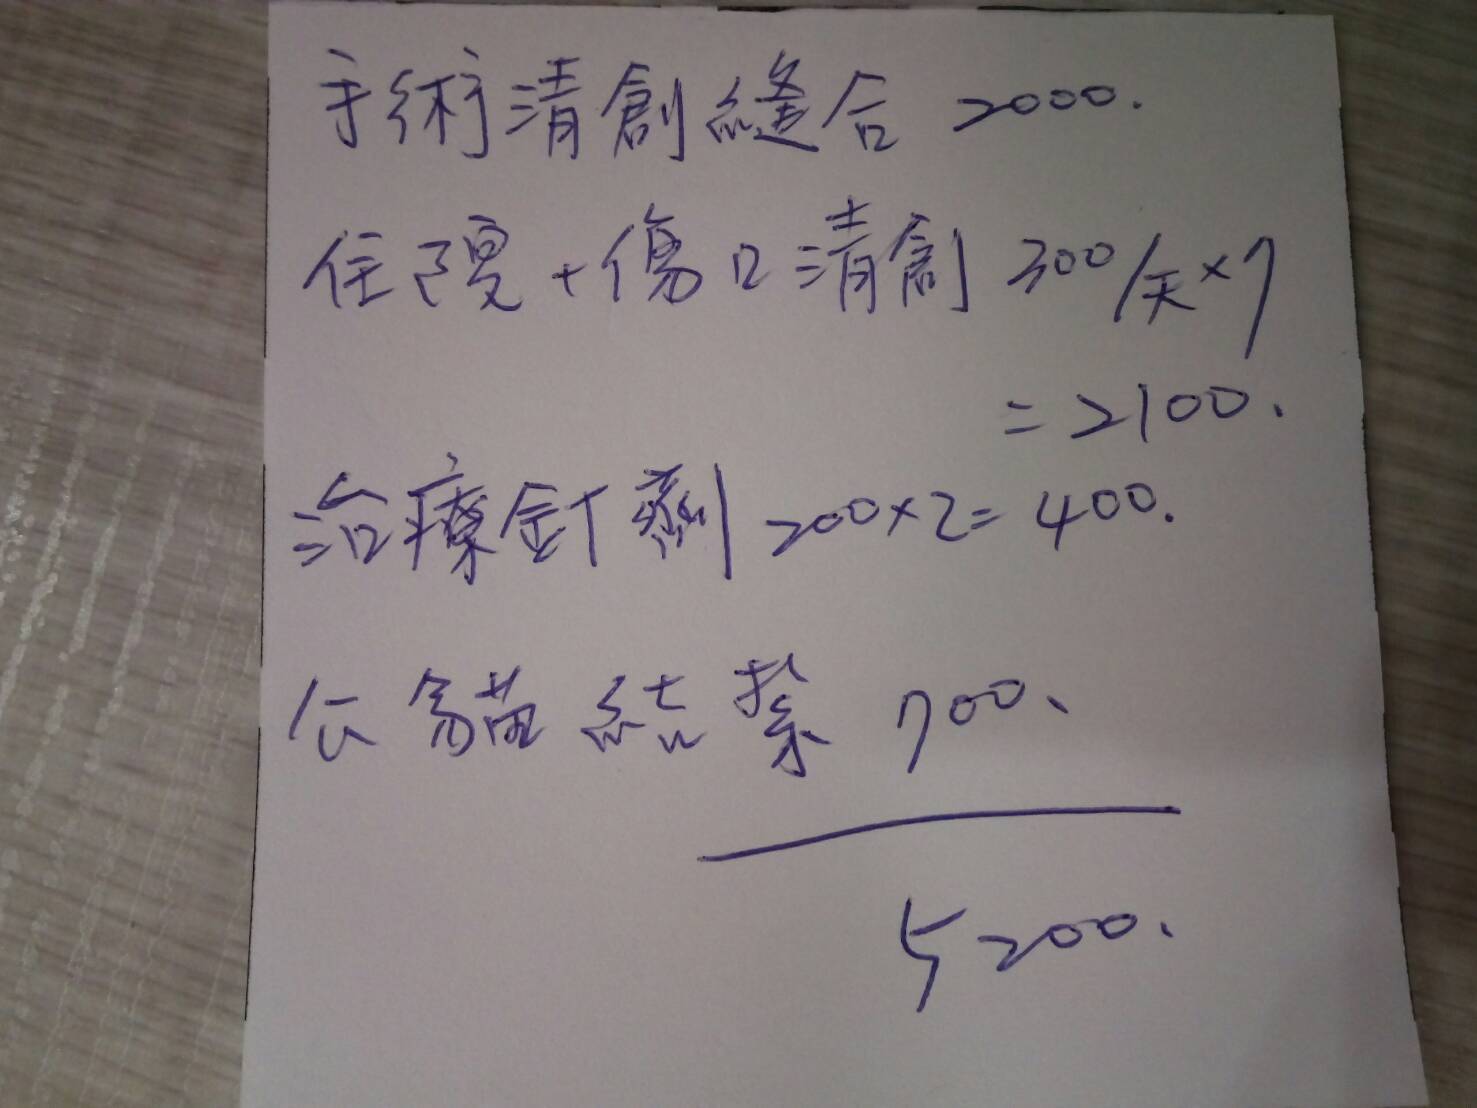 手術清創縫合 2000.
住院+傷口清創 300/天×7
=2100.
治療針劑 200×2=400.
公貓結紮 700、
5200.